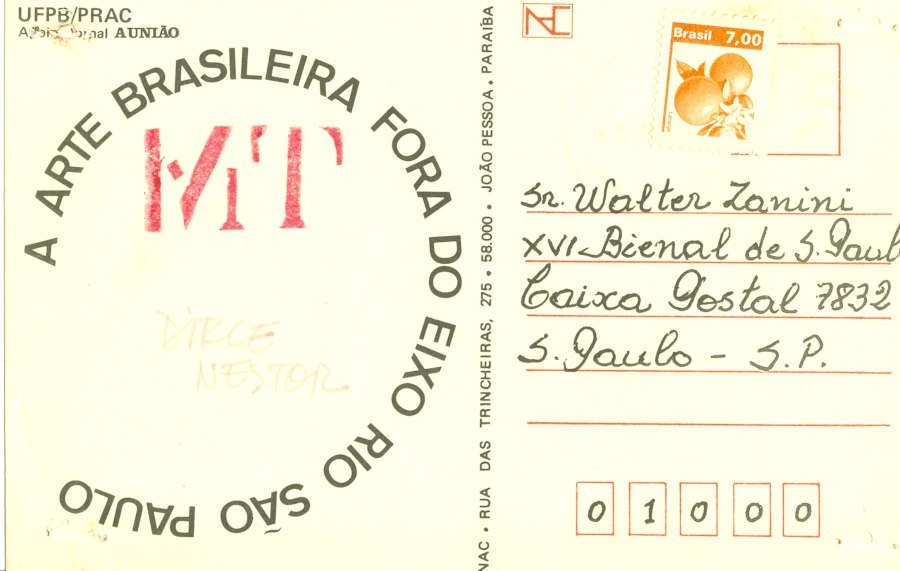 UFPB/PRAC
Apoio Jornal A UNIÃO
A ARTE BRASILEIRA FORA DO EIXO RIO SÃO PAULO
MT
DIRCE
NESTOR
NAC • RUA DAS TRINCHEIRAS, 275 • 58.000 • JOÃO PESSOA • PARAÍBA
Brasil 7,00
Sr. Walter Zanini
XVI Bienal de S. Paulo
Caixa Postal 7832
S. Paulo - S.P.
0 1 0 0 0